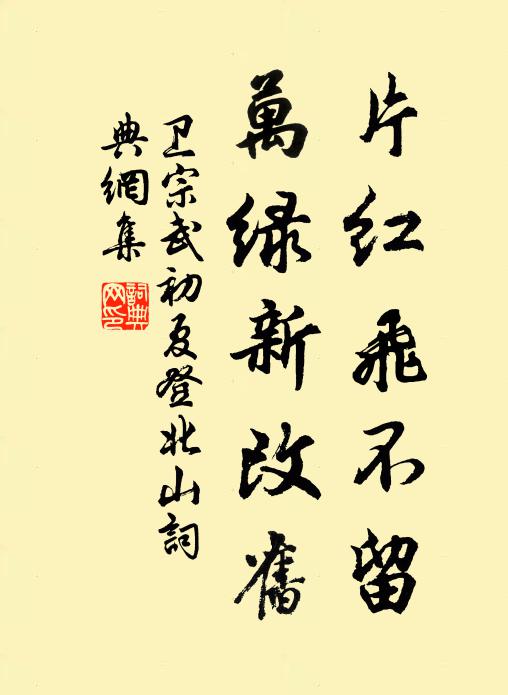 片红飛不留
萬绿新改舊
卫宗武初夏登北山詞
典網集
詞典网印